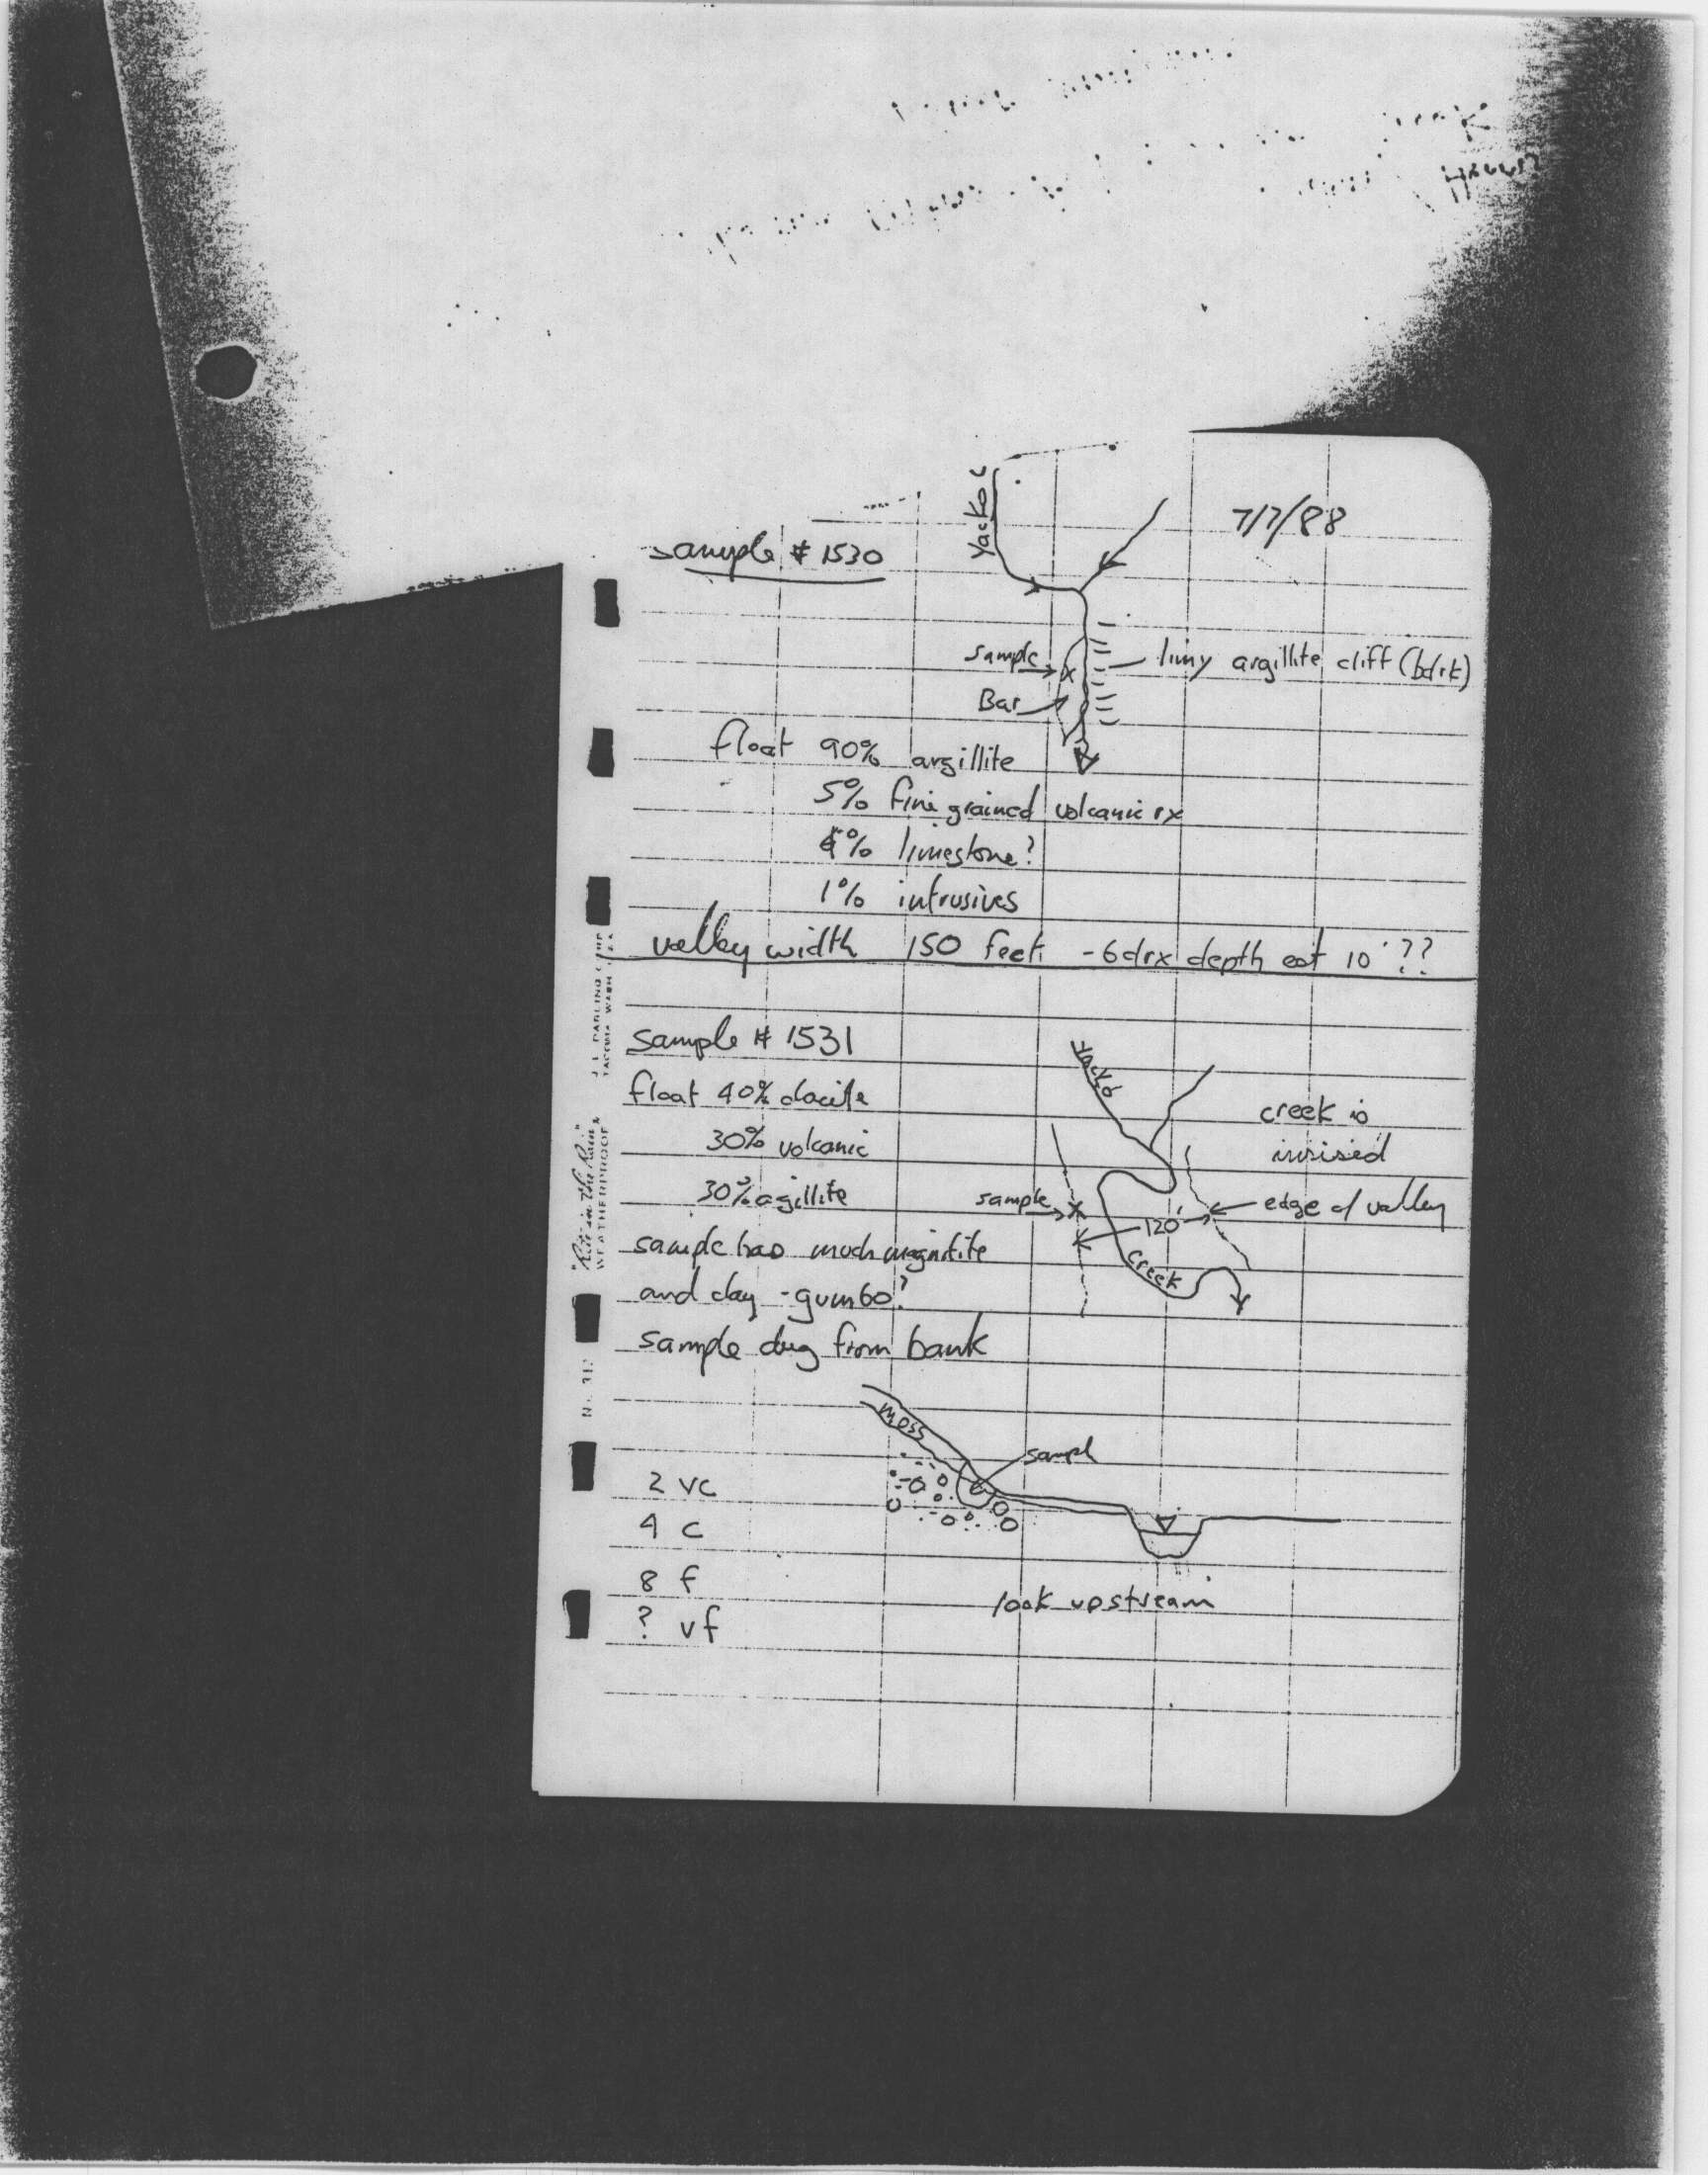 7/7/88
Yacko C
sample # 1530
sample
limy argillite cliff (bdrk)
Bar
float 90% argillite
5% fine grained volcanic rx
4% limestone?
1% intrusives
valley width 150 feet - bdrx depth est 10' ??
sample # 1531
Yacko
float 40% dacite
creek is
30% volcanic
incised
30% agillite
sample
120'
edge of valley
sample has much magnitite
Creek
and clay - gumbo?
sample dug from bank
moss
sampl
2 vc
4 c
8 f
look upstream
? vf
"Rite in the Rain"
WEATHERPROOF
J. L. DARLING CORP
TACOMA WASH